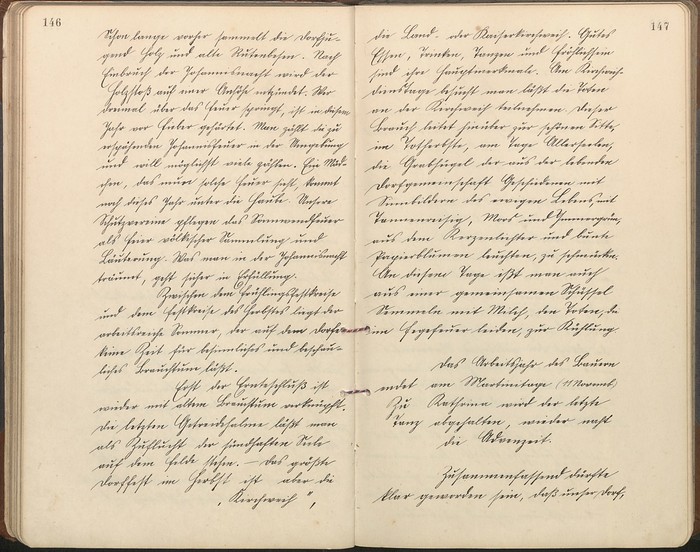 146
Schon lange vorher sammelt die Dorfju-
gend Holz und alte Rutenbesen. Nach
Einbruch der Johannisnacht wird der
Holzstoß auf einer Anhöhe entzündet. Wer
dreimal über das Feuer springt, ist in diesem
Jahr vor Fieber gefeit. Man zählt die zu
erspähenden Johannisfeuer in der Umgebung
und will möglichst viele zählen. Ein Mäd-
chen, das neun solche Feuer sieht, kommt
noch dieses Jahr unter die Haube. Unsere
Schutzvereine pflegen das Sonnwendfeuer
als Feier völkischer Sammlung und
Läuterung. Was man in der Johannisnacht
träumt, geht sicher in Erfüllung.
Zwischen dem Frühlingsfestkreise
und dem Festkreise des Herbstes liegt der
arbeitsreiche Sommer, der auf dem Dorfe
keine Zeit für besinnliches und beschau-
liches Brauchtum läßt.
Erst der Ernteschluß ist
wieder mit altem Brauchtum verknüpft.
Die letzten Getreidehalme läßt man
als Zuflucht der sündhaften Seele
auf dem Felde stehn. – Das größte
Dorffest im Herbst ist aber die
„Kirchweih“,
147
die Land- oder Kaiserkirchweih. Gutes
Essen, Trinken, Tanzen und Fröhlichsein
sind ihre Hauptmerkmale. Am Kirchweih-
dienstage besucht man läßt die Toten
an der Kirchweih teilnehmen. Dieser
Brauch leitet hinüber zur schönen Sitte,
im Totherbste, am Tage Allerseelen,
die Grabhügel der aus der lebenden
Dorfgemeinschaft Geschiedenen mit
Sinnbildern des ewigen Lebens, mit
Tannenreisig, Moos und Immergrün,
aus dem Kerzenlichter und bunte
Papierblumen leuchten, zu schmücken.
An diesem Tage ißt man auch
aus einer gemeinsamen Schüssel
Semmeln mit Milch, den Toten, die
im Fegefeuer leiden, zur Kühlung.
Das Arbeitsjahr des Bauern
endet am Martinitage (11. Novemb.)
Zu Kathrina wird der letzte
Tanz abgehalten, wieder naht
die Adventzeit.
Zusammenfassend dürfte
klar geworden sein, daß unser Dorf,